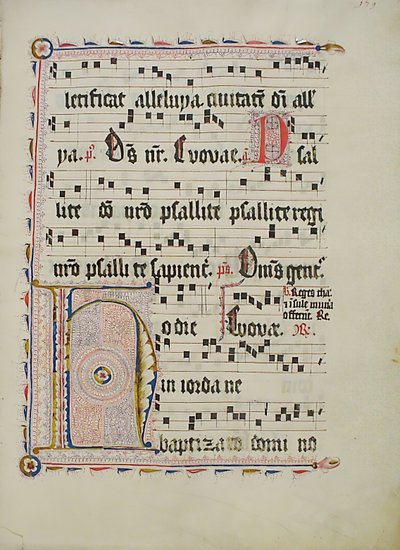 letificat alleluya. ciuitatē dī all
ya. ps. Ds nr. Euouae. a. Psal
lite dō nrō psallite psallite regi
nrō psalli te sapient. ps. Oms gent.
V. Reges thar
insule muna
offerent. Re.
Hodie Euouae.
in iorda ne
baptizato domi no